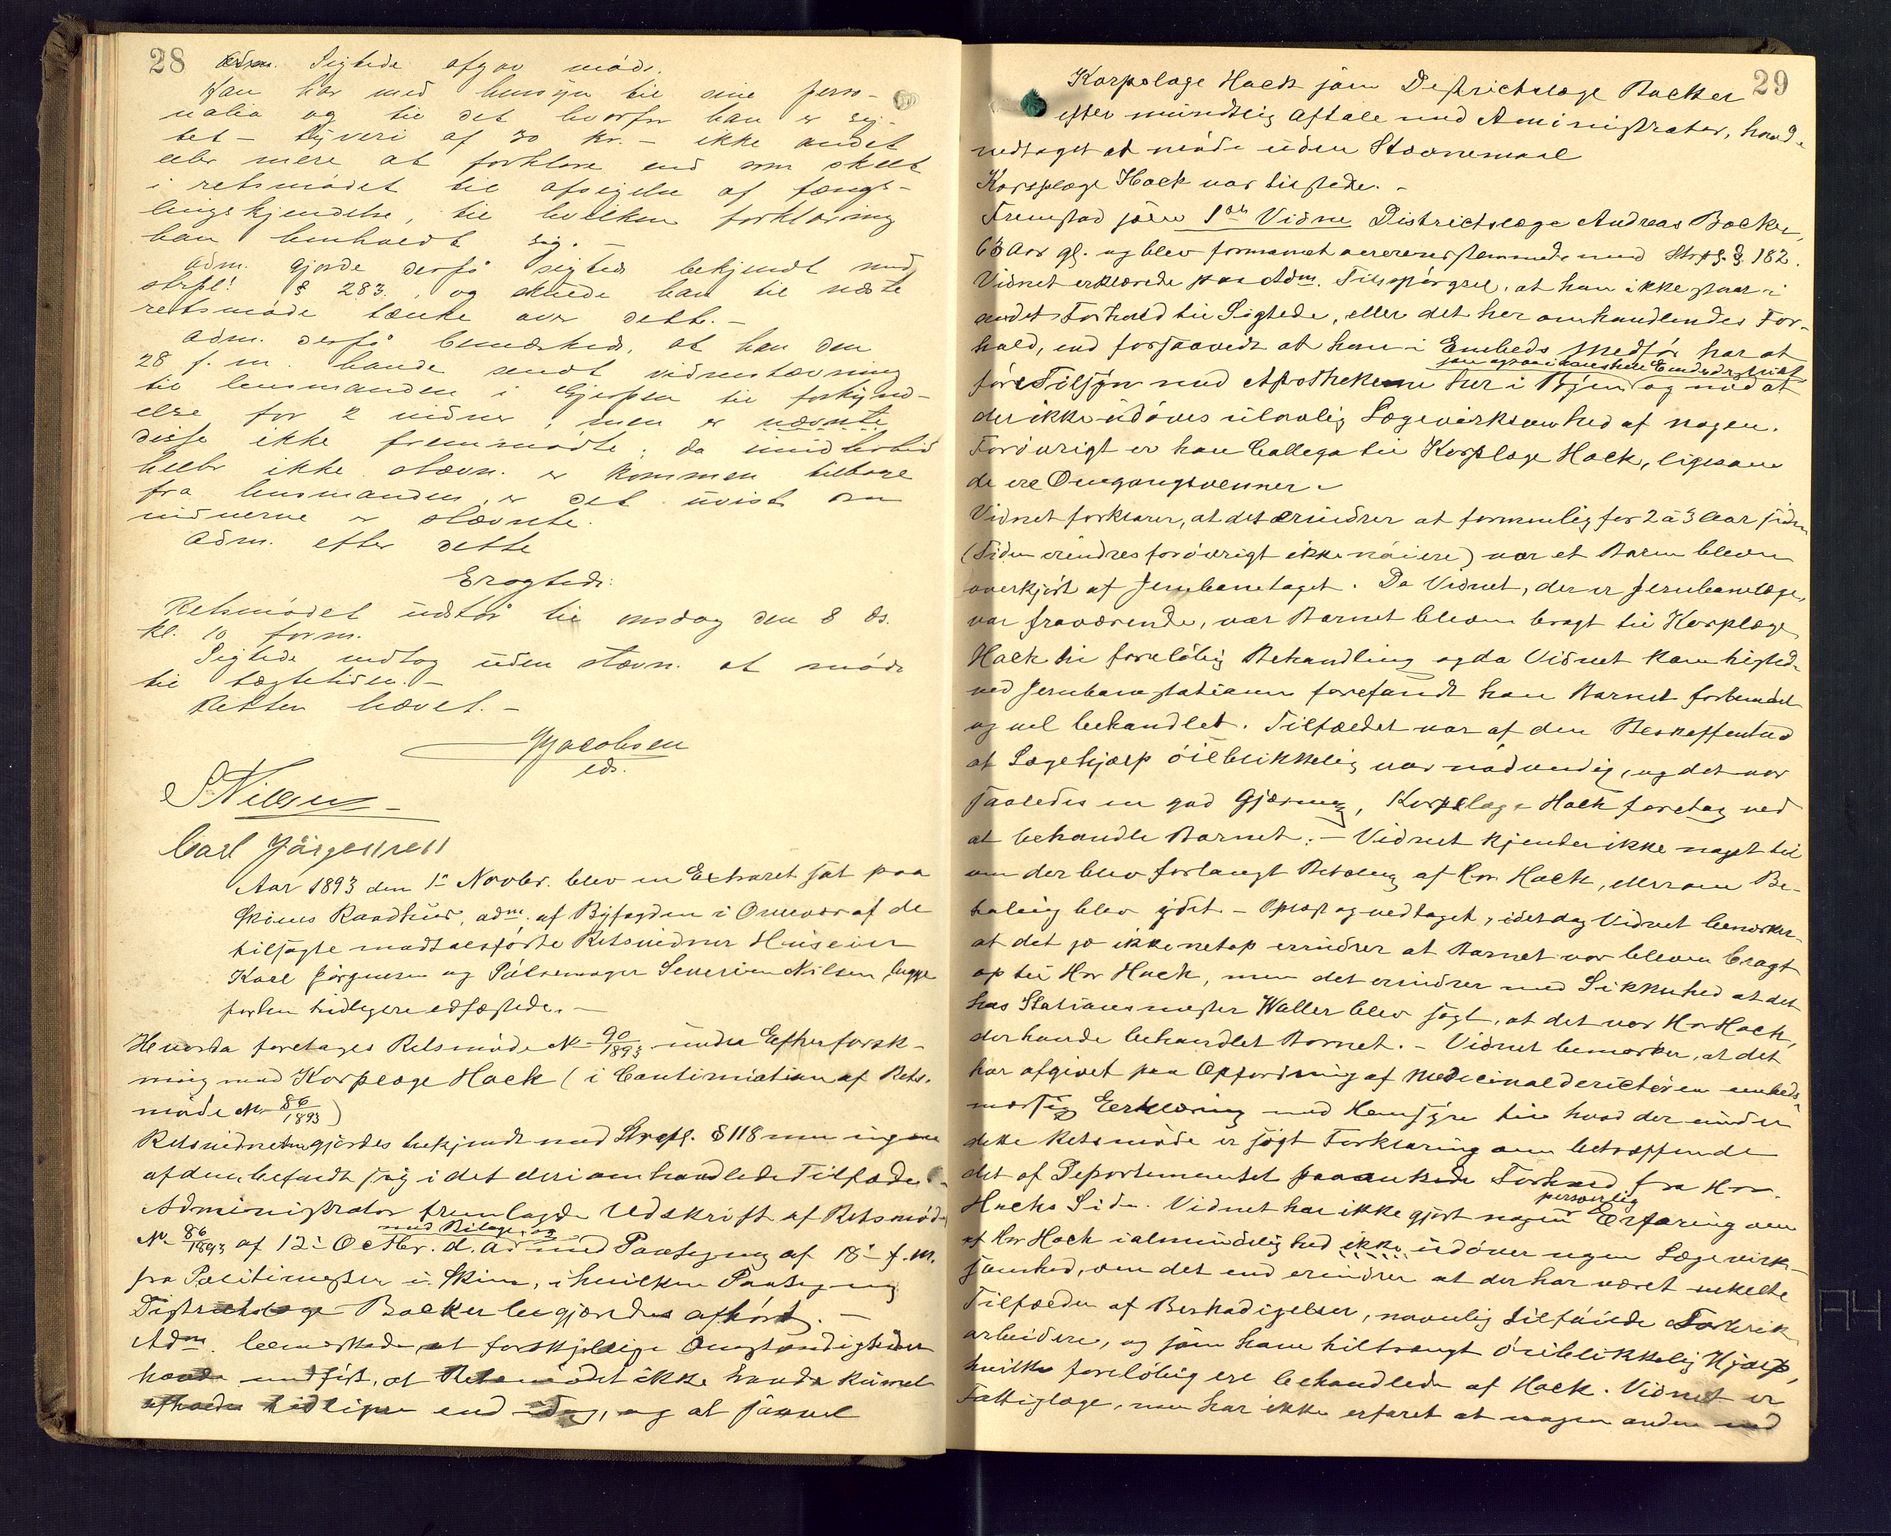 28
Adm. Sigtede afgav møde.
Han har med hensyn til sine perso-
nalia og til det hvorfor han er sig-
tet – tyveri af 70 kr. – ikke andet
eller mere at forklare end som skeet
i retsmødet til afsigelse af fængs-
lingskjendelse, til hvilken forklaring
han henholdt sig. –
Adm. gjorde derpå sigtede bekjendt med
strpl. § 283, og skulde han til næste
retsmøde tænke over dette. –
Adm. derpå bemærkede, at han den
28 f. m. havde sendt vidnestævning
til lensmanden i Gjerpen til forkynd-
else for 2 vidner, men er nævnte
disse ikke fremmødte; da imidlertid
heller ikke stævn. er kommen tilbage
fra lensmanden, er det uvist om
vidnerne er stævnte.
Adm. efter dette
Eragtede:
Retsmødet udstår til onsdag den 8 ds.
kl. 10 form.
Sigtede vedtog uden stævn. at møde
til tægtetiden. –
Retten hævet. –
Jacobsen
eds.
S Nilsen
Carl Jörgensen
Aar 1893 den 1ste Novbr. blev en Extraret sat paa
Skiens Raadhus, adm. af Byfogden i Overvær af de
tilsagte medtalsførte Retsvidner Huseier
Karl Jørgensen og Pølsemager Severin Nilsen, begge
forhen tidligere edfæstede. –
Hvorda foretages Retsmøde No 90/1893 under Efterforsk-
ning mod Korpslæge Hock (i Continuation af Rets-
møde No 86/1893)
Retsvidnerne gjordes bekjendt med Strpl. § 118 men ingen
af dem befandt sig i det deri omhandlede Tilfælde. –
Administrator fremlagde Udskrift af Retsmøde
No 86/1893 af 12te Octbr. d. A. med Bilage, og med Paategning af 18de f. M.
fra Politimester i Skien, i hvilken Paategning
Districtslæge Backer begjæredes afhørt. –
Adm. bemærkede at forskjellige Omstændigheder
havde medført, at Retsmødet ikke havde kunnet
afholdes tidligere end idag, og at saavel
29
Korpslæge Hock som Districtslæge Backer
efter mundtlig Aftale med Aministrator, havde
vedtaget at møde uden Stævnemaal
Korpslæge Hock var tilstede. –
Fremstod som 1ste Vidne Districtslæge Andreas Backer,
63 Aar gl. og blev formanet overensstemmende med Strpl. § 182.
Vidnet erklærede paa Adm. Tilspørgsel, at han ikke staar i
andet Forhold til Sigtede, eller det her omhandlendes For-
hold, end forsaavidt at han i Embeds Medfør har at
føre Tilsyn med Apothekerne her i Byen som ogsaa i hans hele Embedsdistrikt og med at
der ikke udøves ulovlig Lægevirksomhed af nogen.
Forøvrigt er han Collega til Korpslæge Hock, ligesom
de ere Omgangsvenner. –
Vidnet forklarer, at det erindrer at formenlig for 2 à 3 Aar siden
(Tiden erindres forøvrigt ikke nøiere) var et Barn bleven
overkjørt af Jernbanetoget. Da Vidnet, der er Jernbanelæge,
var fraværende, var Barnet bleven bragt til Korpslæge
Hock til foreløbig Behandling og da Vidnet kom tilstede
ved Jernbanestationen forefandt han Barnet forbundet
og vel behandlet. Tilfældet var af den Beskaffenhed
at Lægehjælp øieblikkelig var nødvendig, og det var
saaledes en god Gjerning, Korpslæge Hock foretog ved
at behandle Barnet. – Vidnet kjender ikke noget til
om der blev forlangt Betaling af Hr. Hock, eller om Be-
taling blev ydet – Oplæst og vedtaget, idet dog Vidnet bemærker
at det jo ikke netop erindrer at Barnet var bleven bragt
op til Hr Hock, men det erindrer med Sikkerhed at det
hos Stationsmester Waller blev sagt, at det var Hr Hock,
der havde behandlet Barnet. – Vidnet bemærker, at det
har afgivet paa Opfordring af Medicinaldirectøren embeds-
mæssig Erklæring med Hensyn til hvad der under
dette Retsmøde er søgt Forklaring om betræffende
det af Departementet paaankede Forhold fra Hr.
Hocks Side. Vidnet har ikke gjort nogen personlig Erfaring om
at Hr Hock i almindelighed ikke udøver nogen Lægevirk-
somhed, om det end erindrer at der har været enkelte
Tilfælder af Beskadigelser, navnlig tilføiede Fabrik-
arbeidere, og som have tiltrængt øieblikkelig Hjælp,
hvilke foreløbig ere behandlede af Hock. Vidnet er
Fattiglæge, men har ikke erfaret at nogen anden end